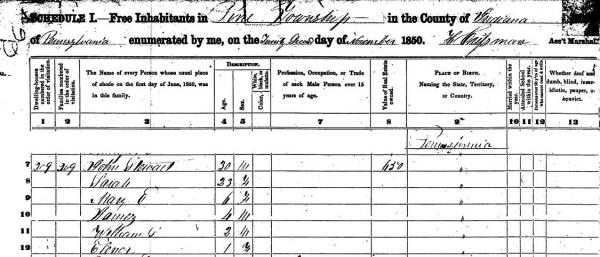 SCHEDULE I.—Free Inhabitants in Pine Township in the County of Indiana
of Pennsylvania enumerated by me, on the day of November 1850. Ass't Marshal.
DESCRIPTION.
Dwelling-houses numbered in the order of visitation. Families numbered in the order of visitation. The Name of every Person whose usual place of abode on the first day of June, 1850, was in this family. Age. Sex. Color, White, black, or mulatto. Profession, Occupation, or Trade of each Male Person over 15 years of age. Value of Real Estate owned. PLACE OF BIRTH. Naming the State, Territory, or Country. Married within the year. Attended School within the year. Whether deaf and dumb, blind, insane, idiotic, pauper, or convict.
1 2 3 4 5 6 7 8 9 10 11 12 13
Pennsylvania
7 309 309 John Stewart 30 m 650 "
8 Sarah 23 f "
9 Mary E 6 f "
10 4 m "
11 William 2 m "
12 1 "